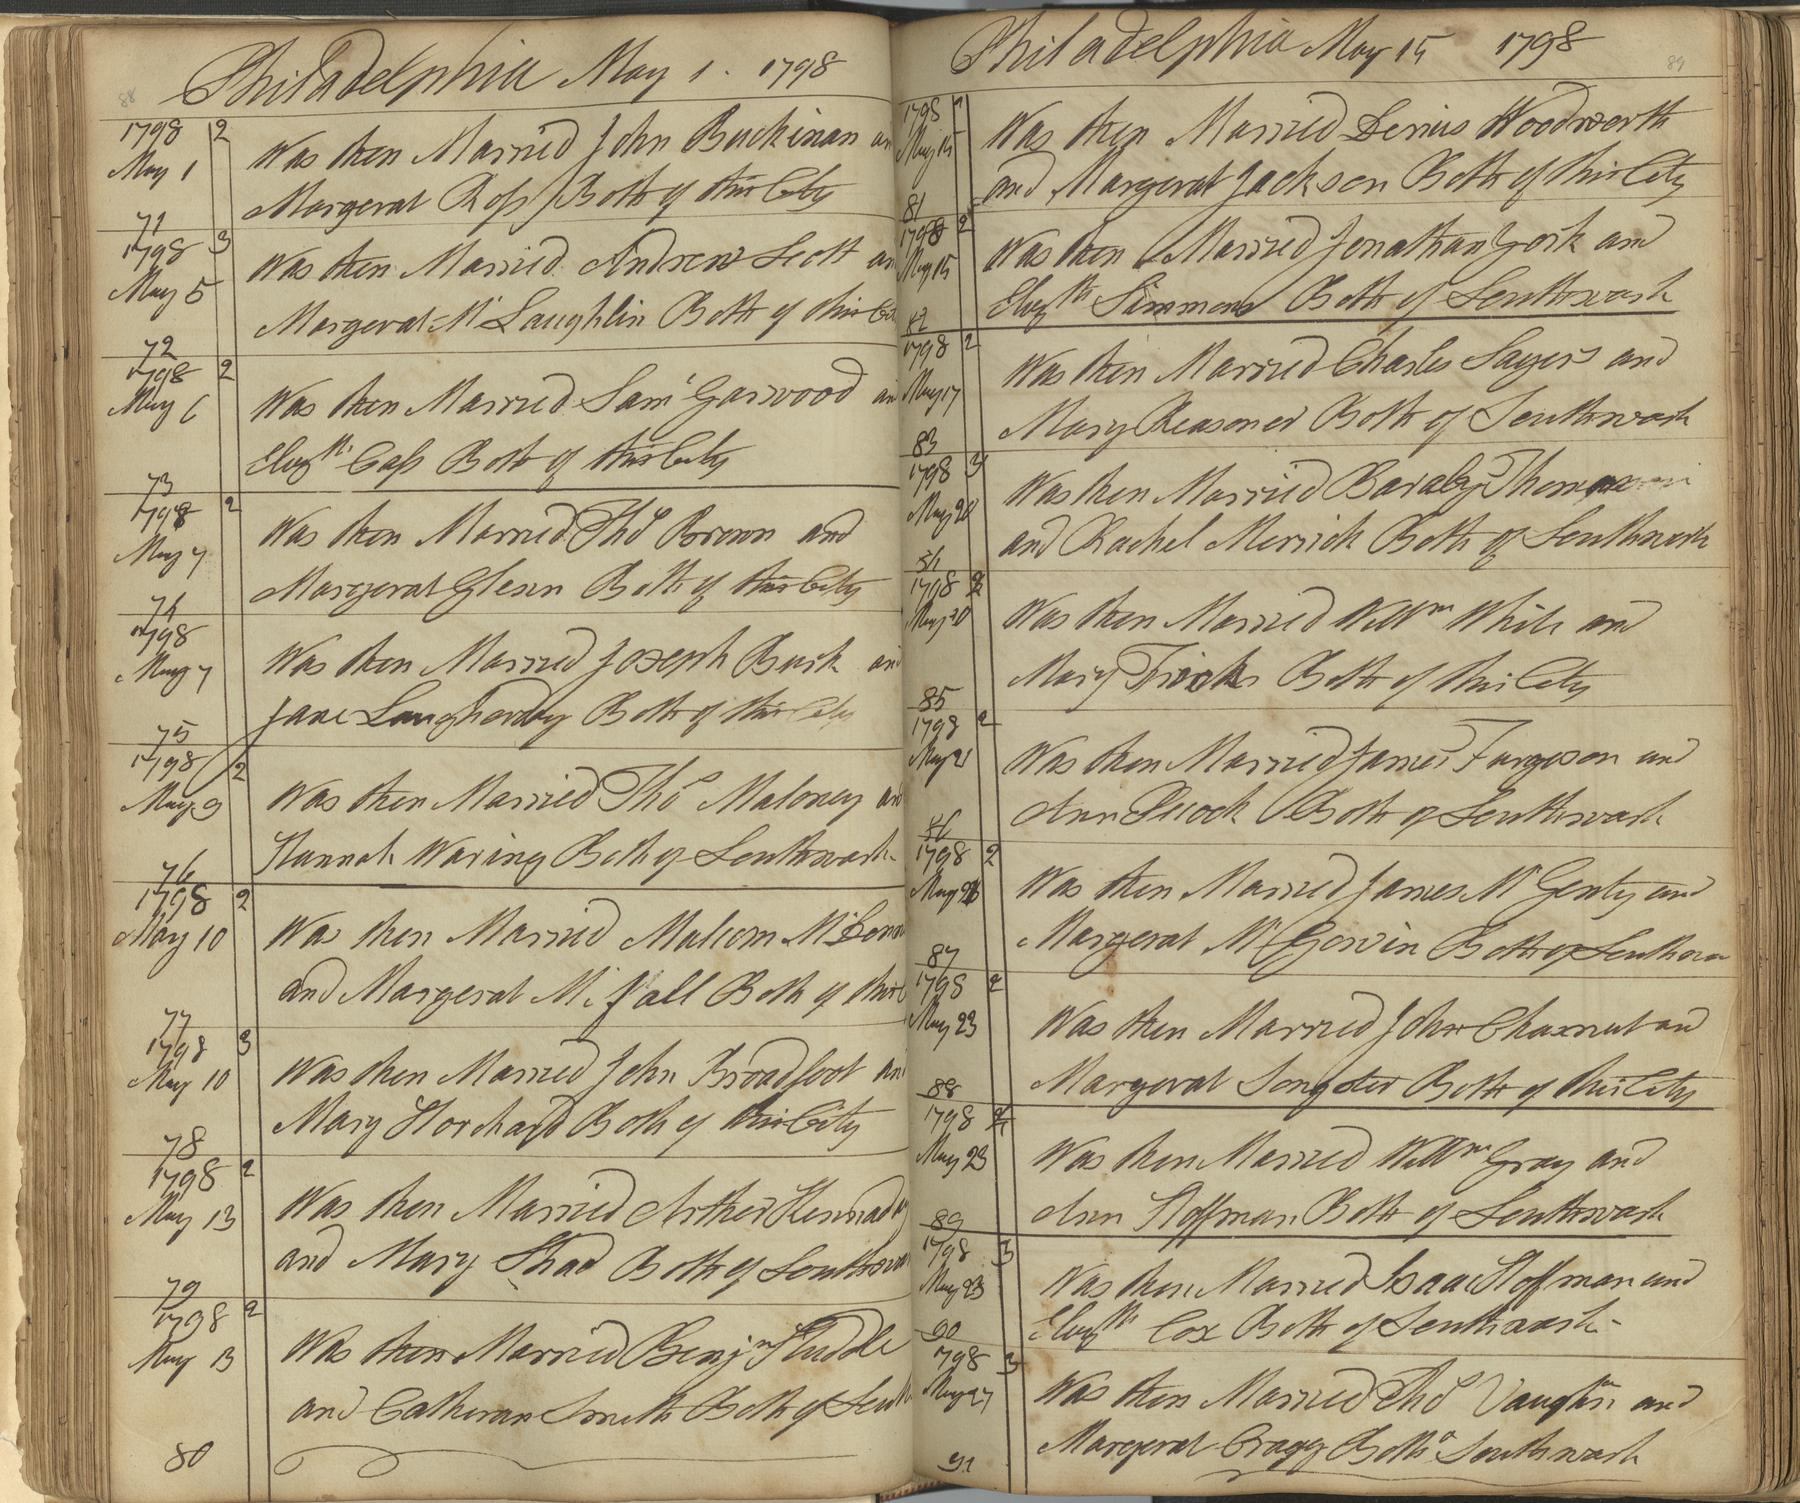 88
Philadelphia May 1. 1798
1798 2
May 1
Was then Married John Buckinan an
Margerat Ross / Both of this City
71
1798 3
May 5
Was then Married Andrew Scott an
Margerat Mc Laughlin Both of this City
72
1798 2
May 6
Was then Married Saml Garwood an
Elizth Cass Both of this City
73
1798 2
May 7
Was then Married Thos Brown and
Margerat Glenn Both of this City
74
1798
May 7
Was then Married Joseph Burk an
Jane Both of this City
75
1798 2
May 9
Was then Married Thos Maloney an
Hannah Waring Both of Southwark
76
1798 2
May 10
Was then Married Malcom
and Margerat Mc Fall Both of this C
77
1798 3
May 10
Was then Married John Broadfoot an
Mary Both of this City
78
1798 2
May 13
Was then Married Arther
and Mary Shad Both of Southwar
79
1798 2
May 13
Was then Married Benjn Huddle
and Catheran Smith Both of
80
89
Philadelphia May 15 1798
1798
May 15
Was then Married Woodworth
and Margerat Jackson Both of this City
81
1798 2
May 15
Was then Married Jonathan York and
Elizth Simmons Both of Southwark
82
1798 2
May 17
Was then Married Charles Sayers and
Mary Reasoner Both of Southwark
83
1798 3
May 20
Was then Married Baraby
and Rachel Merrick Both of Southwark
84
1798 2
May 20
Was then Married Willm White and
Mary Both of this City
85
1798 2
May 21
Was then Married James Furgeson and
Ann Pecock Both of Southwark
86
1798 2
May
Was then Married James Mc Genty and
Margerat Mc Gowin Both of Southwar
87
1798 2
May 23
Was then Married John Chasnut and
Margerat Songster Both of this City
88
1798
May 23
Was then Married Willm Gray and
Ann Hoffman Both of Southwark
89
1798 3
May 23
Was then Married Isaac Hoffman and
Elizth Cox Both of Southwark
90
1798 3
May 27
Was then Married Thos Vaughn and
Margerat Cragg Both o Southwark
91